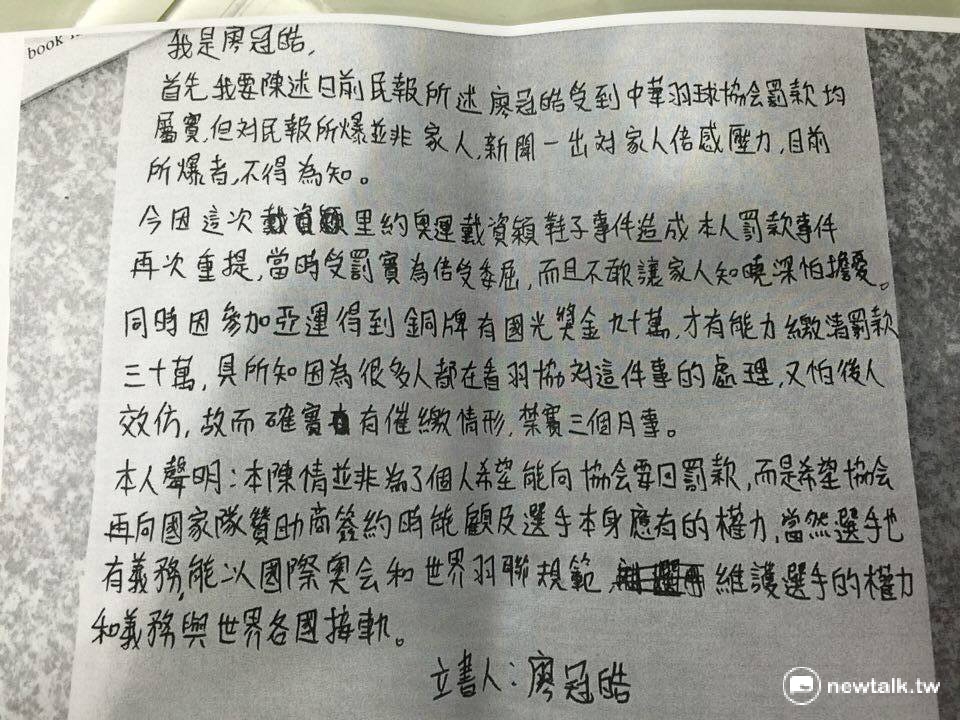 book
我是廖冠皓,
首先,我要陳述日前民報所述廖冠皓受到中華羽球協会罰款均
屬實,但対民報所爆並非家人,新聞一出対家人倍感壓力,目前
所爆者,不得為知。
今因這次里約奧運戴資穎鞋子事件造成本人罰款事件
再次重提,當時受罰實為倍受委屈,而且不敢讓家人知曉深怕擔憂。
同時因參加亞運得到銅牌有國光獎金九十萬,才有能力繳清罰款
三十萬,具所知因為很多人都在看羽協対這件事的處理,又怕後人
效仿,故而確實有催繳情形,禁賽三個月事。
本人聲明:本陳情並非為了個人希望能向協会要回罰款,而是希望協会
再向國家隊贊助商簽約時能顧及選手本身應有的權力,當然選手也
有義務,能以國際奧会和世界羽聯規範維護選手的權力
和義務與世界各國接軌。
立書人:廖冠皓
newtalk.tw